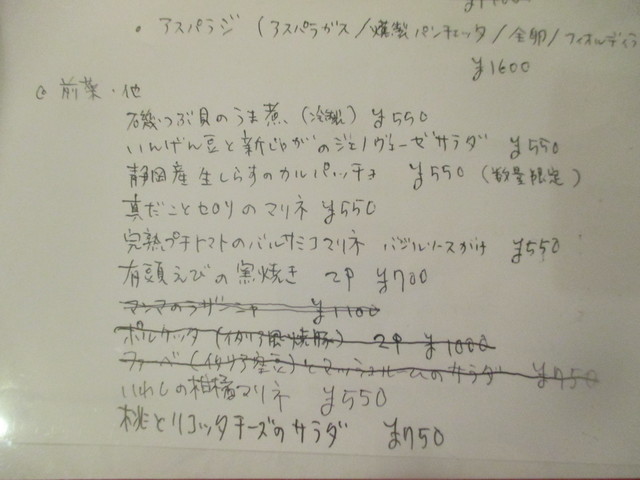 ・アスパラジ (アスパラガス/燻製パンチェッタ/全卵/フィオルディラ
¥1600
◎ 前菜・他
磯つぶ貝のうま煮 (冷製) ¥550
いんげん豆と新じゃがのジェノヴェーゼサラダ ¥550
静岡産生しらすのカルパッチョ ¥550 (数量限定)
真だことセロリのマリネ ¥550
完熟プチトマトのバルサミコマリネ バジルソースがけ ¥550
有頭えびの窯焼き 2P ¥700
マンマのラザーニャ ¥1100
ポルケッタ (イタリア風焼豚) 2P ¥1000
ファーベ (イタリア空豆) とマッシュルームのサラダ ¥750
いわしの柑橘マリネ ¥550
桃とリコッタチーズのサラダ ¥750